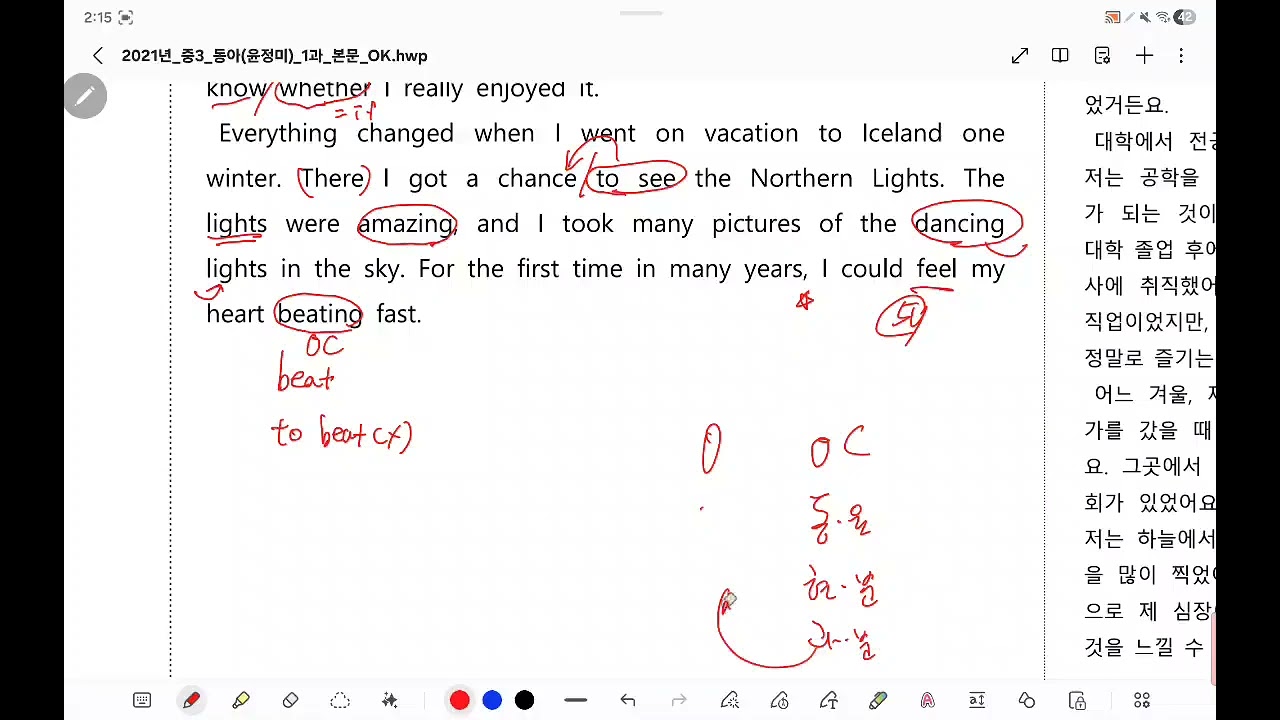 2:15
42
2021년_중3_동아(윤정미)_1과_본문_OK.hwp
know whether I really enjoyed it.
= if
Everything changed when I went on vacation to Iceland one
winter. (There) I got a chance / to see the Northern Lights. The
lights were amazing, and I took many pictures of the dancing
lights in the sky. For the first time in many years, I could feel my
heart beating fast.
OC
beat
to beat (x)
5V
O OC
동·원
현·분
과·분
었거든요.
대학에서 전공
저는 공학을
가 되는 것이
대학 졸업 후에
사에 취직했어
직업이었지만,
정말로 즐기는
어느 겨울,
가를 갔을 때
요. 그곳에서
회가 있었어요
저는 하늘에서
을 많이 찍었
으로 제 심장
것을 느낄 수